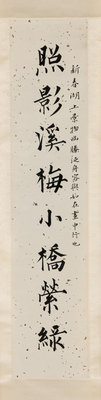 新春湖上景物幽勝泛舟容與如在畫中行也
照影溪梅小橋縈綠